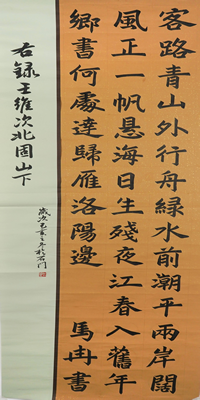 客路青山外行舟綠水前潮平兩岸闊
風正一帆懸海日生殘夜江春入舊年
鄉書何處達歸雁洛陽邊 馬冉書
右録王維次北固山下
歲次己亥之年於石门